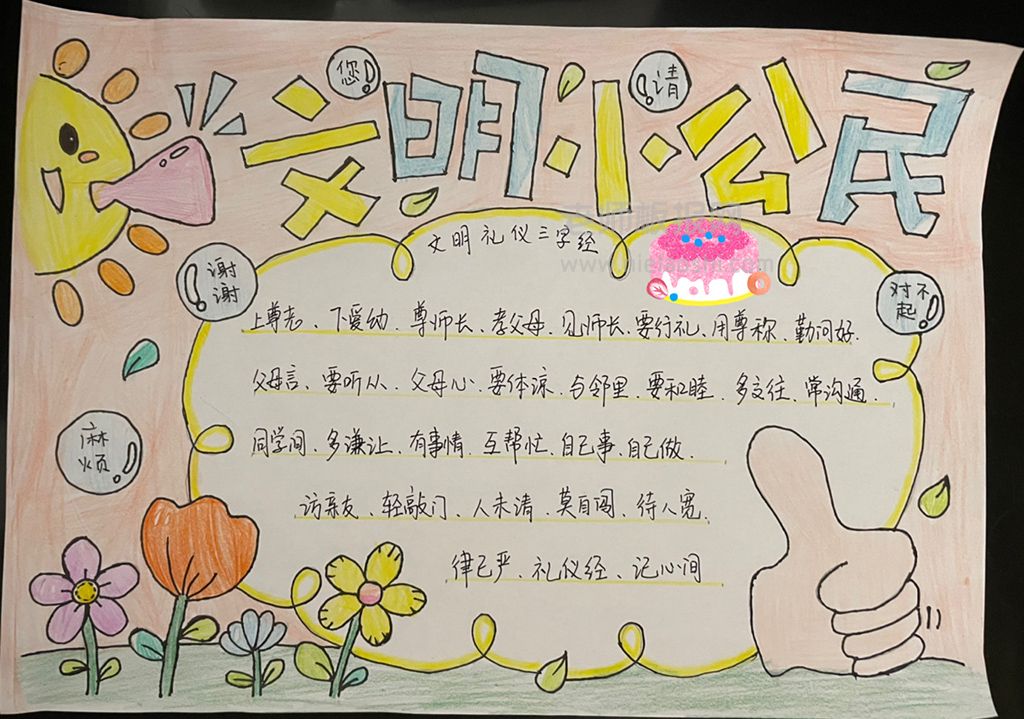 文明小公民
您!
请!
谢谢!
对不起!
麻烦!
文明礼仪三字经
上尊老、下爱幼、尊师长、孝父母、见师长、要行礼、用尊称、勤问好.
父母言、要听从、父母心、要体谅、与邻里、要和睦、多交往、常沟通.
同学间、多谦让、有事情、互帮忙、自己事、自己做.
访亲友、轻敲门、人未请、莫自闯、待人宽、
律己严、礼仪经、记心间